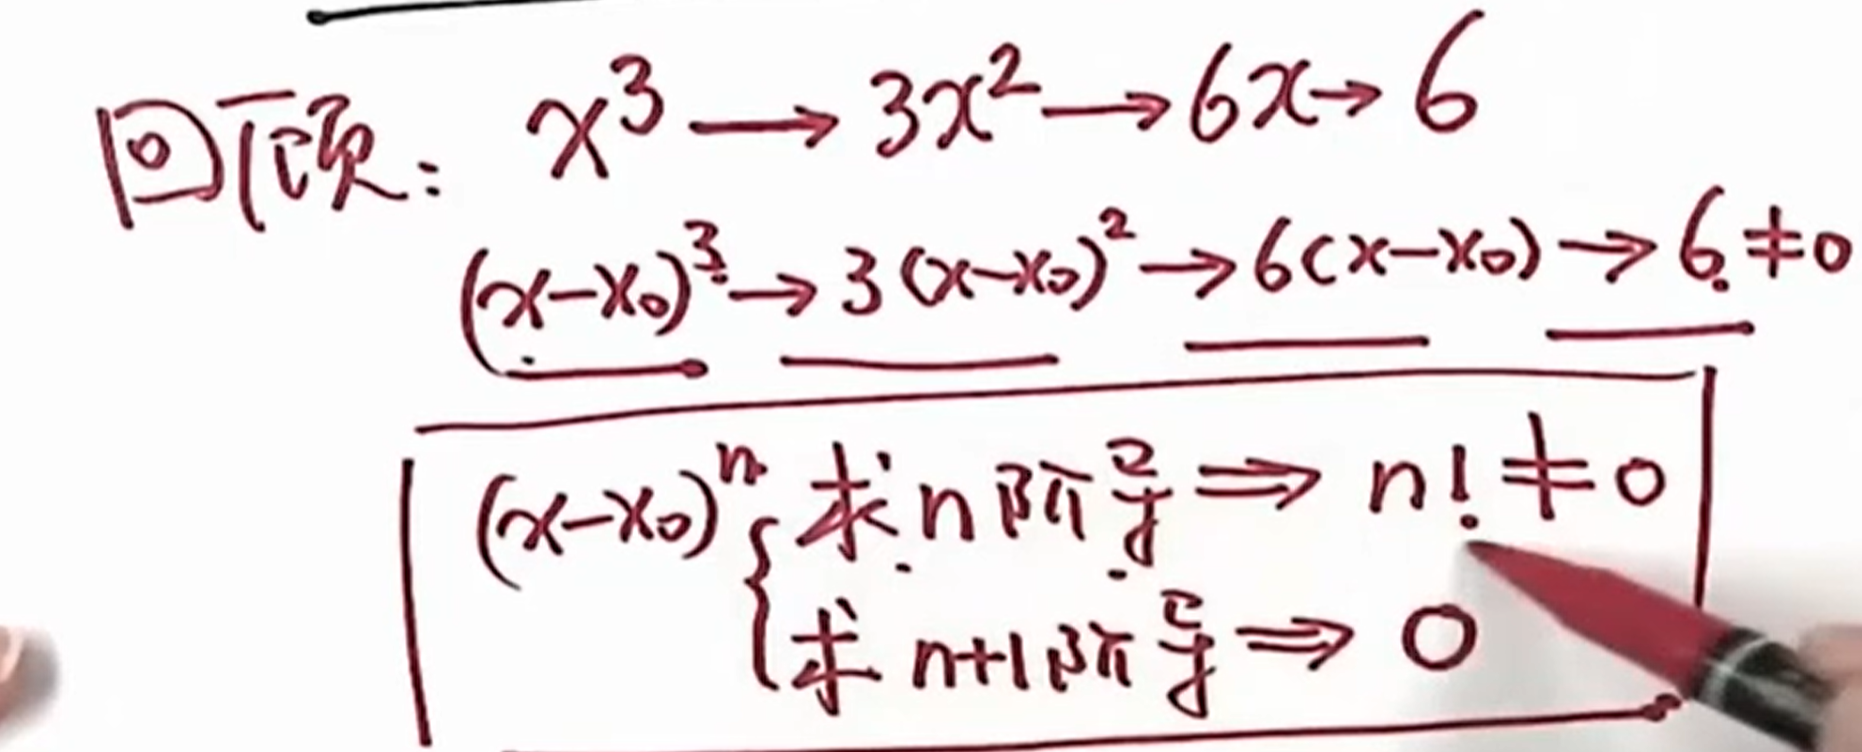 回顾: x³ → 3x² → 6x → 6
(x-x₀)³ → 3(x-x₀)² → 6(x-x₀) → 6 ≠ 0
(x-x₀)ⁿ { 求 n 阶导 ⇒ n! ≠ 0
求 n+1 阶导 ⇒ 0